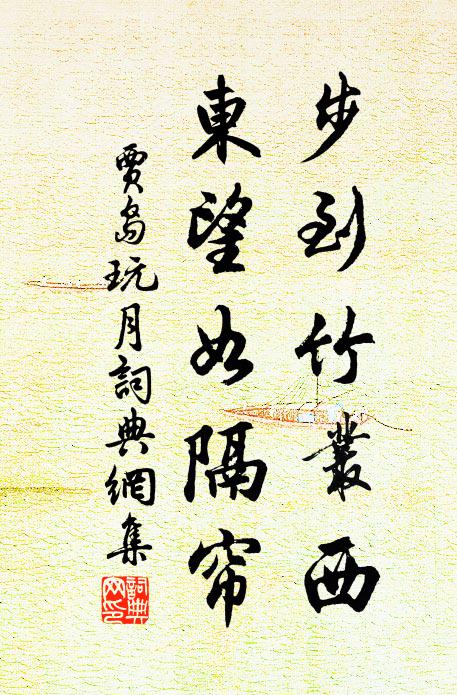 步到竹叢西
東望如隔帘
賈島玩月詞典網集
詞典网印